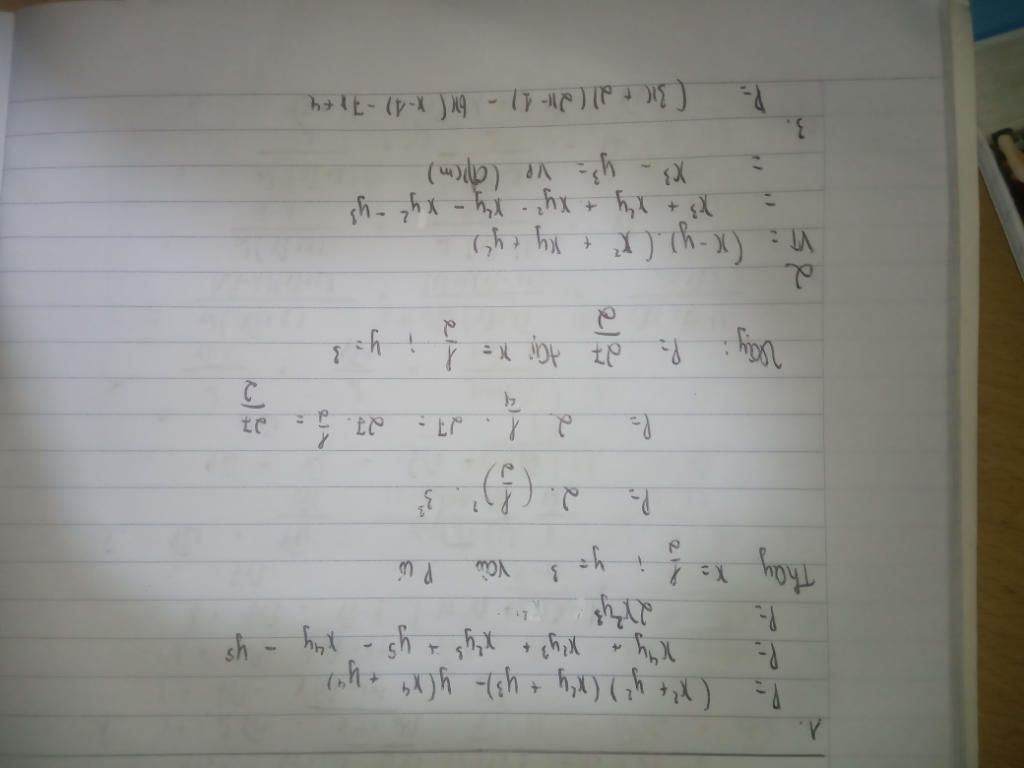 1.
P = (x² + y²)(x²y + y³) - y(x⁴ + y⁴)
P = x⁴y + x²y³ + x²y³ + y⁵ - x⁴y - y⁵
P = 2x²y³
Thay x = 1/2 ; y = 3 vào P
P = 2. (1/2)² . 3³
P = 2. 1/4 . 27 = 27. 1/2 = 27/2
Vậy: P = 27/2 tại x = 1/2 ; y = 3
2
VT = (x - y).(x² + xy + y²)
= x³ + x²y + xy² - x²y - xy² - y³
= x³ - y³ = VP (đpcm)
3.
P = (3x + 2)(2x - 1) - 6x(x - 1) - 7x + 4